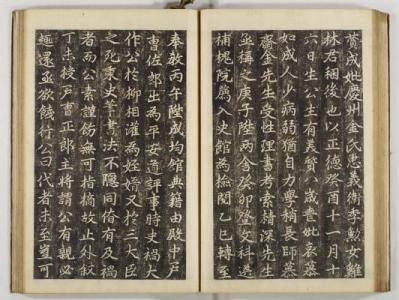 黃戌妣慶州金氏忠義衛李勲女雞
林君稛後也以正德癸酉十一月十
六日生公生有美質八歲喪妣哀慕
如成人少病弱猶自力學稍長師慕
齋金先生受性理書考索精深先生
亟稱之庚子陞兩舍癸卯登文科選
補槐院薦入史館為撿閱乙巳轉至
奉敎丙午陞成均館典籍由殿中戶
曹佐郎出為平安道評事時史禍大
作公於柳相灌為姪婿又於三大臣
之死秉史筆書法不隱同儕有及禍
者而公素謹飭無可指摘故止外叙
丁未授戶曹正郎主将謂公有親必
還亟欲餞行公曰代者未至豈可